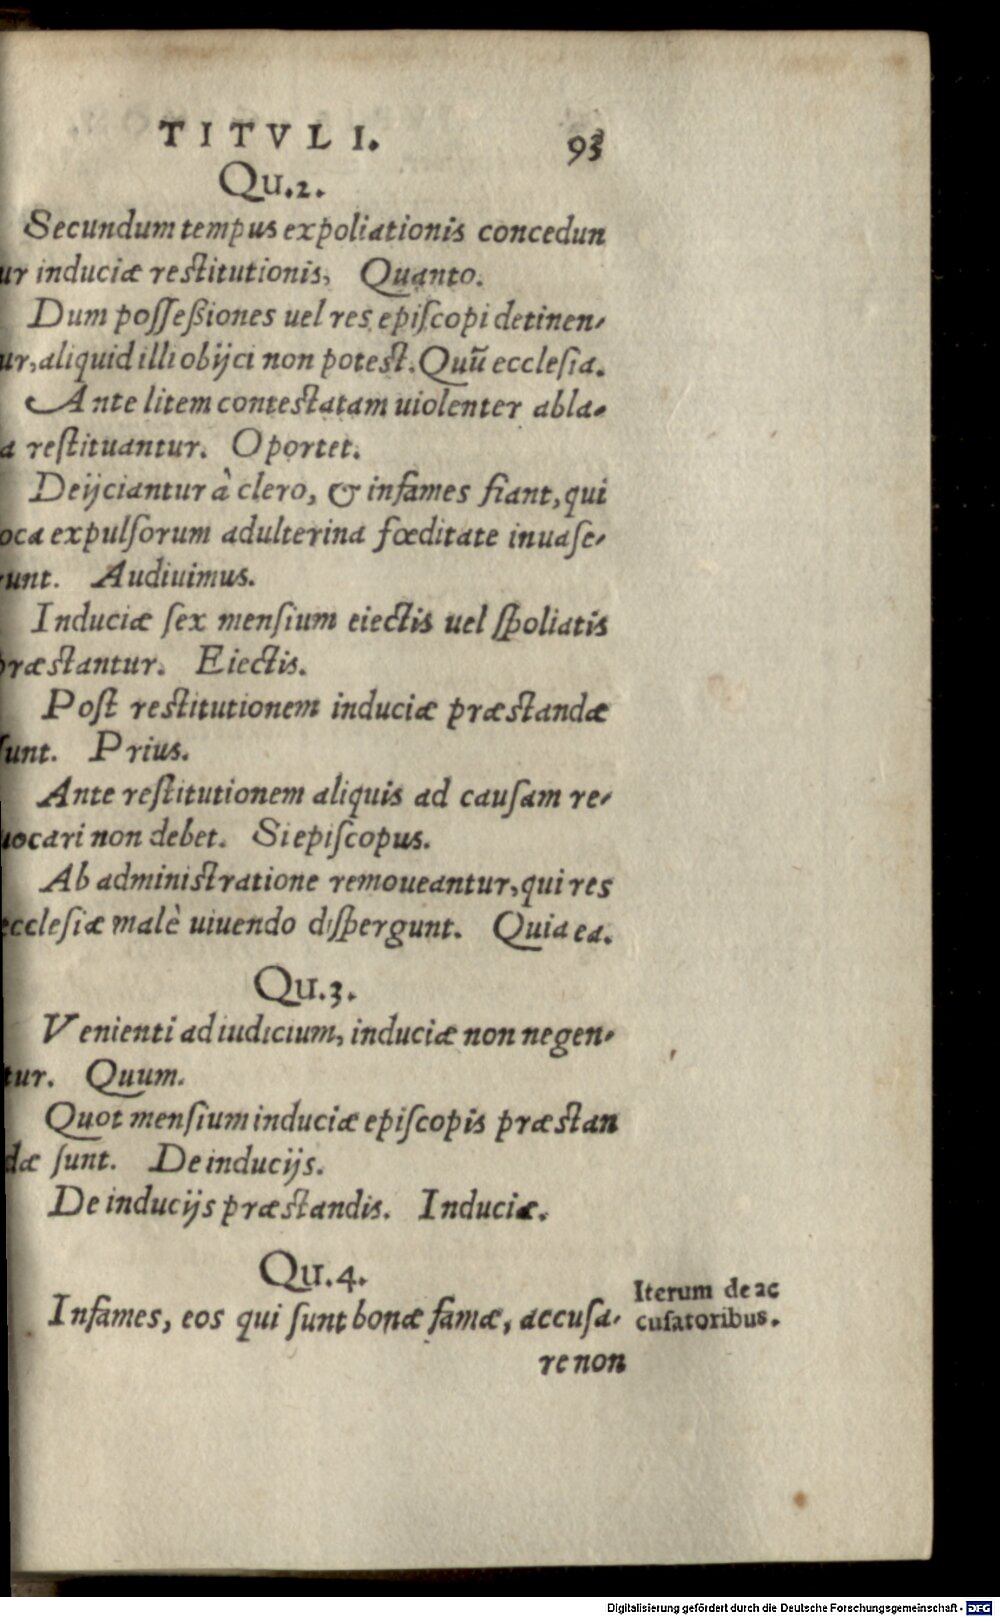 TITVLI. 93
Qu.2.
Secundum tempus expoliationis concedun
ur induciæ restitutionis, Quanto.
Dum possessiones uel res episcopi detinen-
ur, aliquid illi obijci non potest. Quū ecclesia.
Ante litem contestatam uiolenter abla-
a restituantur. Oportet.
Deijciantur à clero, & infames fiant, qui
oca expulsorum adulterina fœditate inuase-
runt. Audiuimus.
Induciæ sex mensium eiectis uel spoliatis
præstantur. Eiectis.
Post restitutionem induciæ præstandæ
sunt. Prius.
Ante restitutionem aliquis ad causam re-
uocari non debet. Si episcopus.
Ab administratione remoueantur, qui res
ecclesiæ malè uiuendo dispergunt. Quia ea.
Qu.3.
Venienti ad iudicium, induciæ non negen-
tur. Quum.
Quot mensium induciæ episcopis præstan
dæ sunt. De inducijs.
De inducijs præstandis. Induciæ.
Qu.4.
Infames, eos qui sunt bonæ famæ, accusa-
re non
Iterum de ac
cusatoribus.
Digitalisierung gefördert durch die Deutsche Forschungsgemeinschaft - DFG